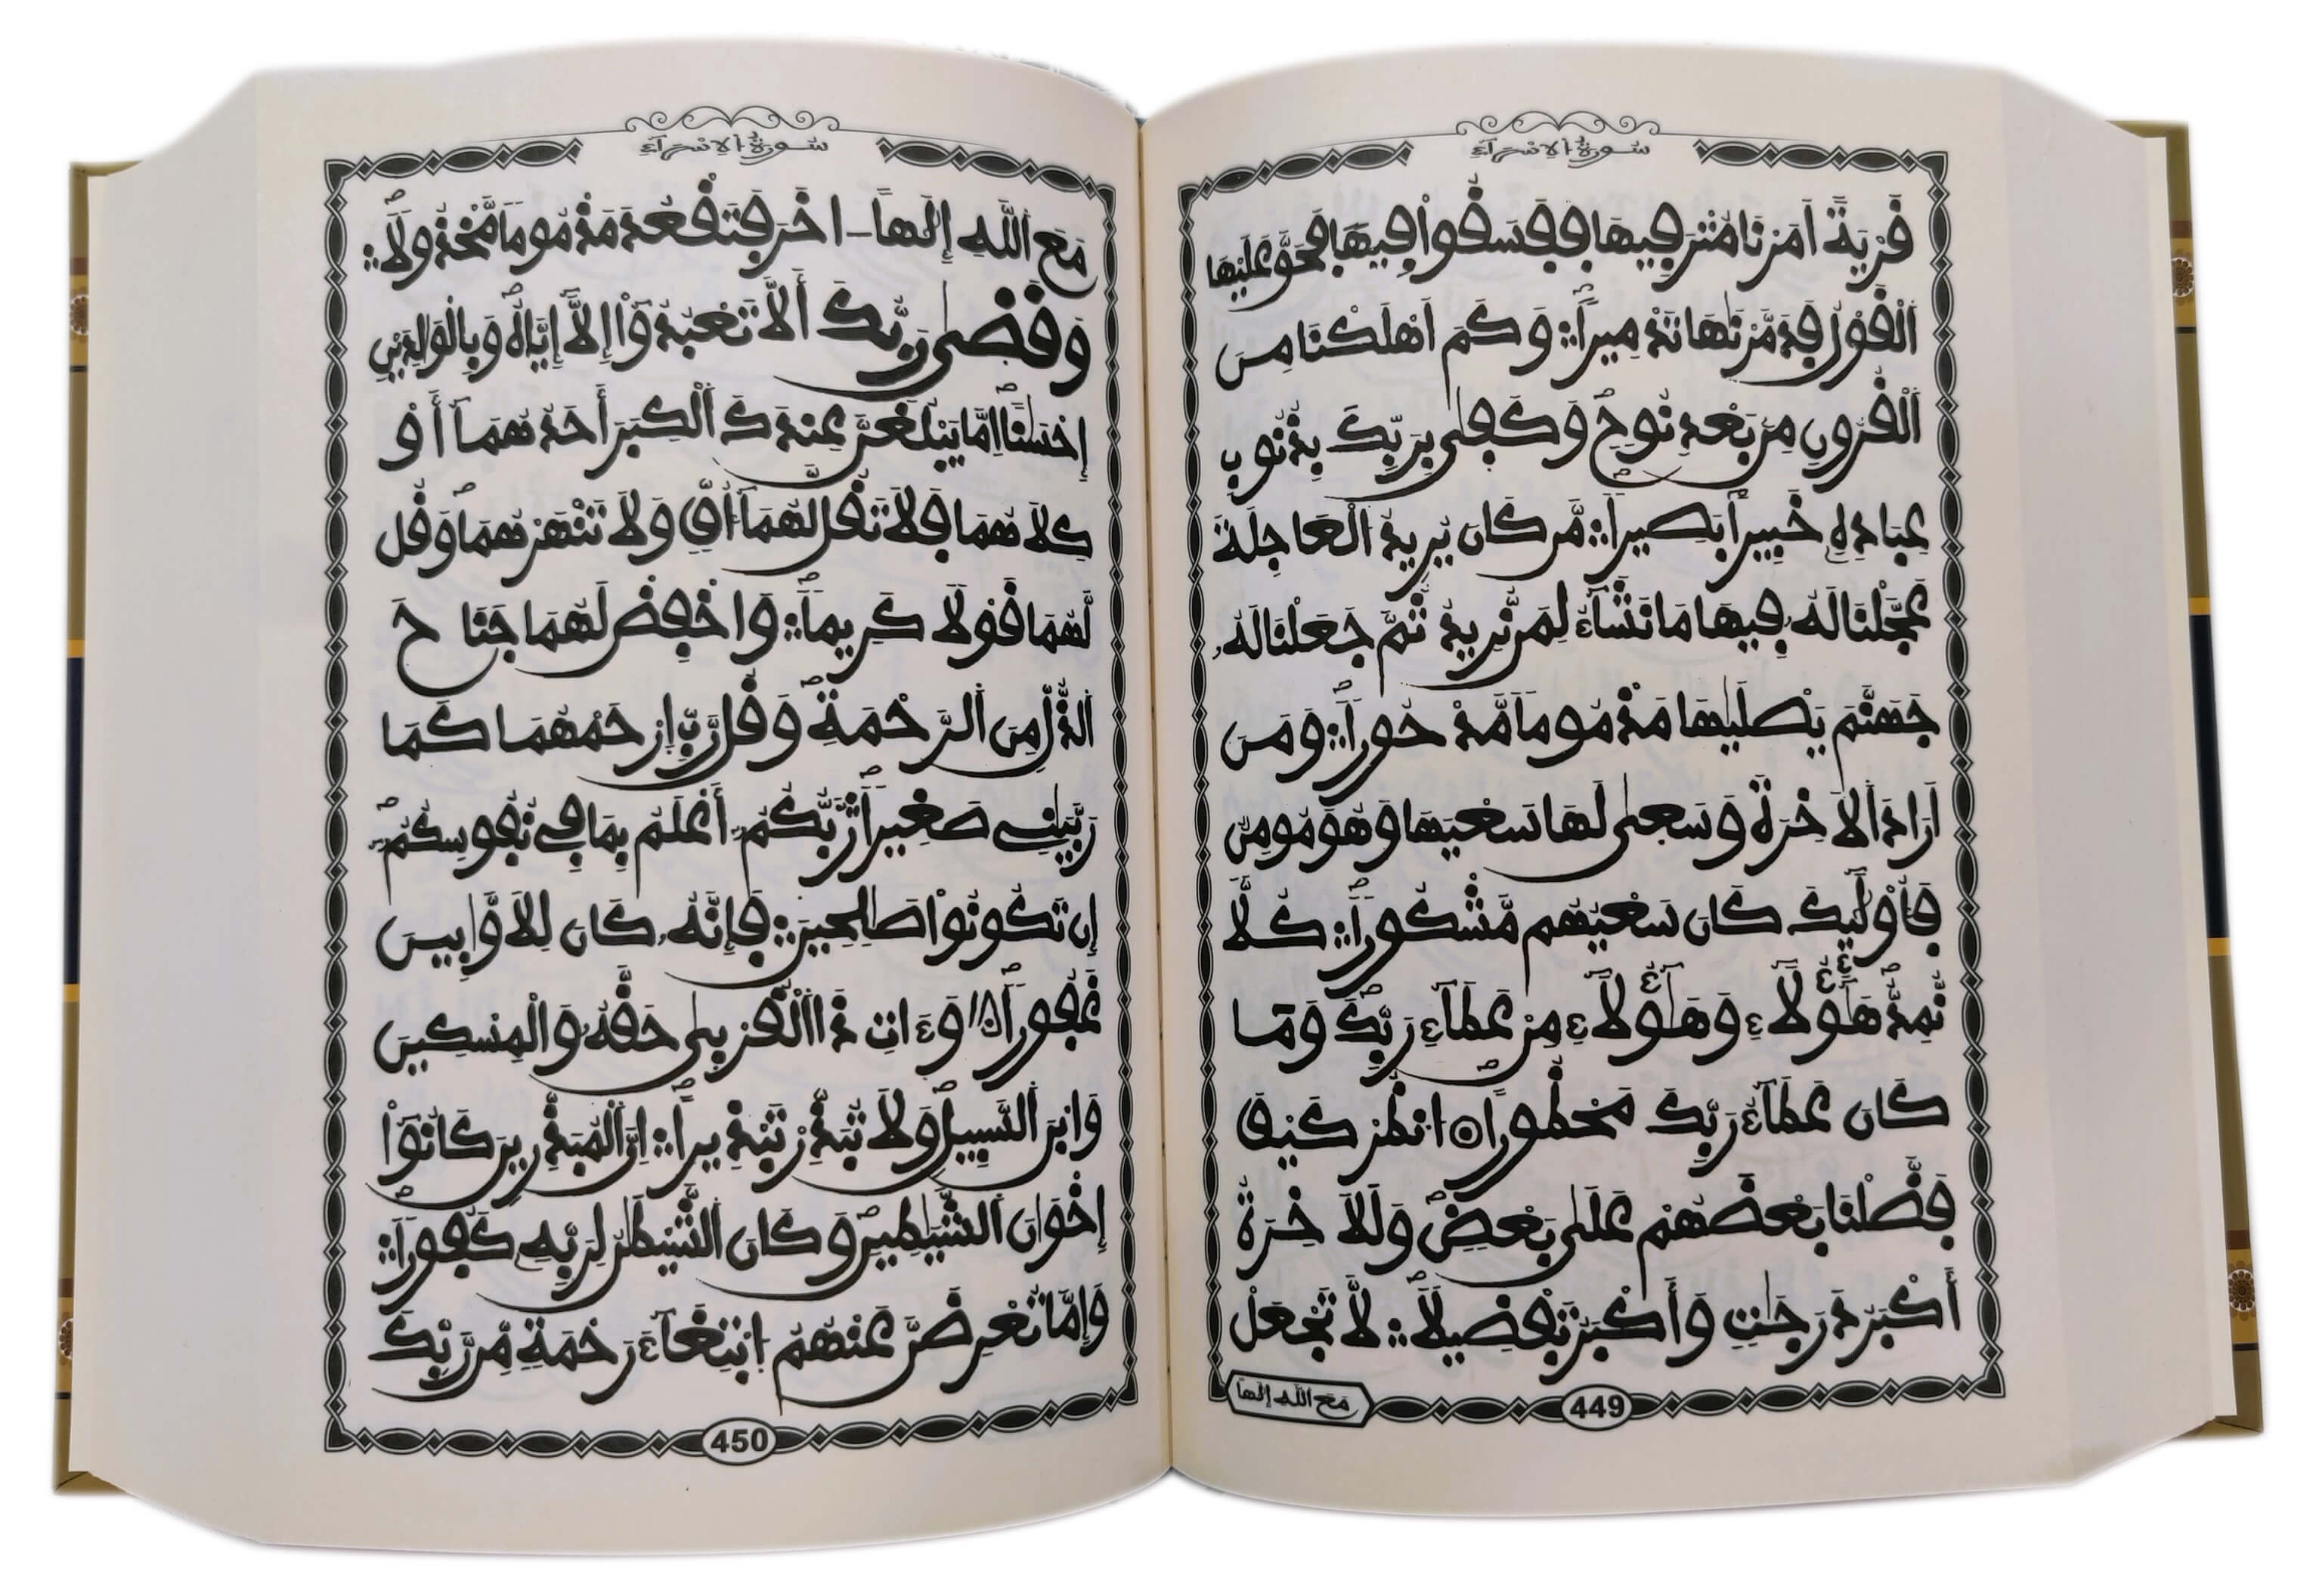 سُورَةُ الِاسْرَاءِ
قَرْيَةً اَمَرْنَا مُتْرَفِيهَا فَفَسَقُواْ فِيهَا فَحَقَّ عَلَيْهَا
اَلْقَوْلُ فَدَمَّرْنَٰهَا تَدْمِيراً وَكَمَ اَهْلَكْنَا مِنَ
اَلْقُرُونِ مِنۢ بَعْدِ نُوحٍ وَكَفَىٰ بِرَبِّكَ بِذُنُوبِ
عِبَادِهِۦ خَبِيراً بَصِيراً مَّن كَانَ يُرِيدُ اُلْعَاجِلَةَ
عَجَّلْنَا لَهُۥ فِيهَا مَا نَشَآءُ لِمَن نُّرِيدُ ثُمَّ جَعَلْنَا لَهُۥ
جَهَنَّمَ يَصْلَيٰهَا مَذْمُوماً مَّدْحُوراً وَمَنَ
اَرَادَ اَلَاخِرَةَ وَسَعَىٰ لَهَا سَعْيَهَا وَهُوَ مُومِنٌ
فَأُوْلَٰٓئِكَ كَانَ سَعْيُهُم مَّشْكُوراً كُلّاً
نُّمِدُّ هَٰٓؤُلَآءِ وَهَٰٓؤُلَآءِ مِنْ عَطَآءِ رَبِّكَ وَمَا
كَانَ عَطَآءُ رَبِّكَ مَحْظُوراً اَنظُرْ كَيْفَ
فَضَّلْنَا بَعْضَهُمْ عَلَىٰ بَعْضٍ وَلَلَاخِرَةُ
أَكْبَرُ دَرَجَٰتٍ وَأَكْبَرُ تَفْضِيلاً لَّا تَجْعَلْ
مَعَ اَللَّهِ إِلَٰهاً
449
سُورَةُ الِاسْرَاءِ
مَعَ اَللَّهِ إِلَٰهاً اٰخَرَ فَتَقْعُدَ مَذْمُوماً مَّخْذُولاً
وَقَضَىٰ رَبُّكَ أَلَّا تَعْبُدُوٓاْ إِلَّآ إِيَّاهُ وَبِالْوَٰلِدَيْنِ
إِحْسَٰناً اِمَّا يَبْلُغَنَّ عِندَكَ اَلْكِبَرَ أَحَدُهُمَآ أَوْ
كِلَاهُمَا فَلَا تَقُل لَّهُمَآ أُفٍّ وَلَا تَنْهَرْهُمَا وَقُل
لَّهُمَا قَوْلاً كَرِيماً وَاخْفِضْ لَهُمَا جَنَاحَ
اَلذُّلِّ مِنَ اَلرَّحْمَةِ وَقُل رَّبِّ اِرْحَمْهُمَا كَمَا
رَبَّيَٰنِے صَغِيراً رَّبُّكُمُۥٓ أَعْلَمُ بِمَا فِے نُفُوسِكُمُۥٓ
إِن تَكُونُواْ صَٰلِحِينَ فَإِنَّهُۥ كَانَ لِلَاوَّٰبِينَ
غَفُوراً وَءَاتِ ذَا اَلْقُرْبَىٰ حَقَّهُۥ وَالْمِسْكِينَ
وَابْنَ اَلسَّبِيلِ وَلَا تُبَذِّرْ تَبْذِيراً اِنَّ اَلْمُبَذِّرِينَ كَانُوٓاْ
إِخْوَٰنَ اَلشَّيَٰطِينِ وَكَانَ اَلشَّيْطَٰنُ لِرَبِّهِۦ كَفُوراً
وَإِمَّا تُعْرِضَنَّ عَنْهُمُ اُبْتِغَآءَ رَحْمَةٍ مِّن رَّبِّكَ
450